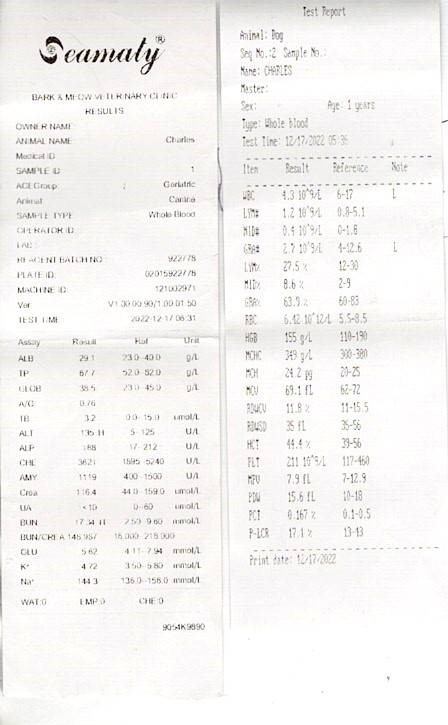 Seamaty®
BARK & MEOW VETERINARY CLINIC
RESULTS
OWNER NAME
ANIMAL NAME Charles
Medical ID
SAMPLE ID 1
AGEGroup Geriatric
Animal Canine
SAMPLE TYPE Whole Blood
OPERATOR ID
LAB :
REAGENT BATCH NO : 922778
PLATE ID: 02015922778
MACHINE ID: 121002971
Ver V1.00.00.90/1.00.01.50
TEST TIME 2022-12-17 06:31
Assay Result Ref Unit
ALB 29.1 23.0-40.0 g/L
TP 67.7 52.0-82.0 g/L
GLOB 38.5 23.0-45.0 g/L
A/G 0.76
TB 3.2 0.0-15.0 umol/L
ALT 135 H 5-125 U/L
ALP 188 17-212 U/L
CHE 3621 1895-5240 U/L
AMY 1119 400-1500 U/L
Crea 116.4 44.0-159.0 umol/L
UA <10 0-60 umol/L
BUN 17.34 H 2.50-9.60 mmol/L
BUN/CREA 148.967 16.000-218.000
GLU 5.62 4.11-7.94 mmol/L
K+ 4.72 3.50-5.80 mmol/L
Na+ 144.3 138.0-158.0 mmol/L
WAT:0 EMP:0 CHE:0
9054K9890
Test Report
Animal: Dog
Seq No.:2 Sample No.:
Name: CHARLES
Master:
Sex: Age: 1 years
Type: Whole blood
Test Time: 12/17/2022 05:36
Item Result Reference Note
WBC 4.3 10^9/L 6-17 L
LYM# 1.2 10^9/L 0.8-5.1
MID# 0.4 10^9/L 0-1.8
GRA# 2.7 10^9/L 4-12.6 L
LYM% 27.5 % 12-30
MID% 8.6 % 2-9
GRA% 63.9 % 60-83
RBC 6.42 10^12/L 5.5-8.5
HGB 155 g/L 110-190
MCHC 349 g/L 300-380
MCH 24.2 pg 20-25
MCV 69.1 fL 62-72
RDWCV 11.8 % 11-15.5
RDWSD 35 fL 35-56
HCT 44.4 % 39-56
PLT 211 10^9/L 117-460
MPV 7.9 fL 7-12.9
PDW 15.6 fL 10-18
PCT 0.167 % 0.1-0.5
P-LCR 17.1 % 13-43
Print date: 12/17/2022